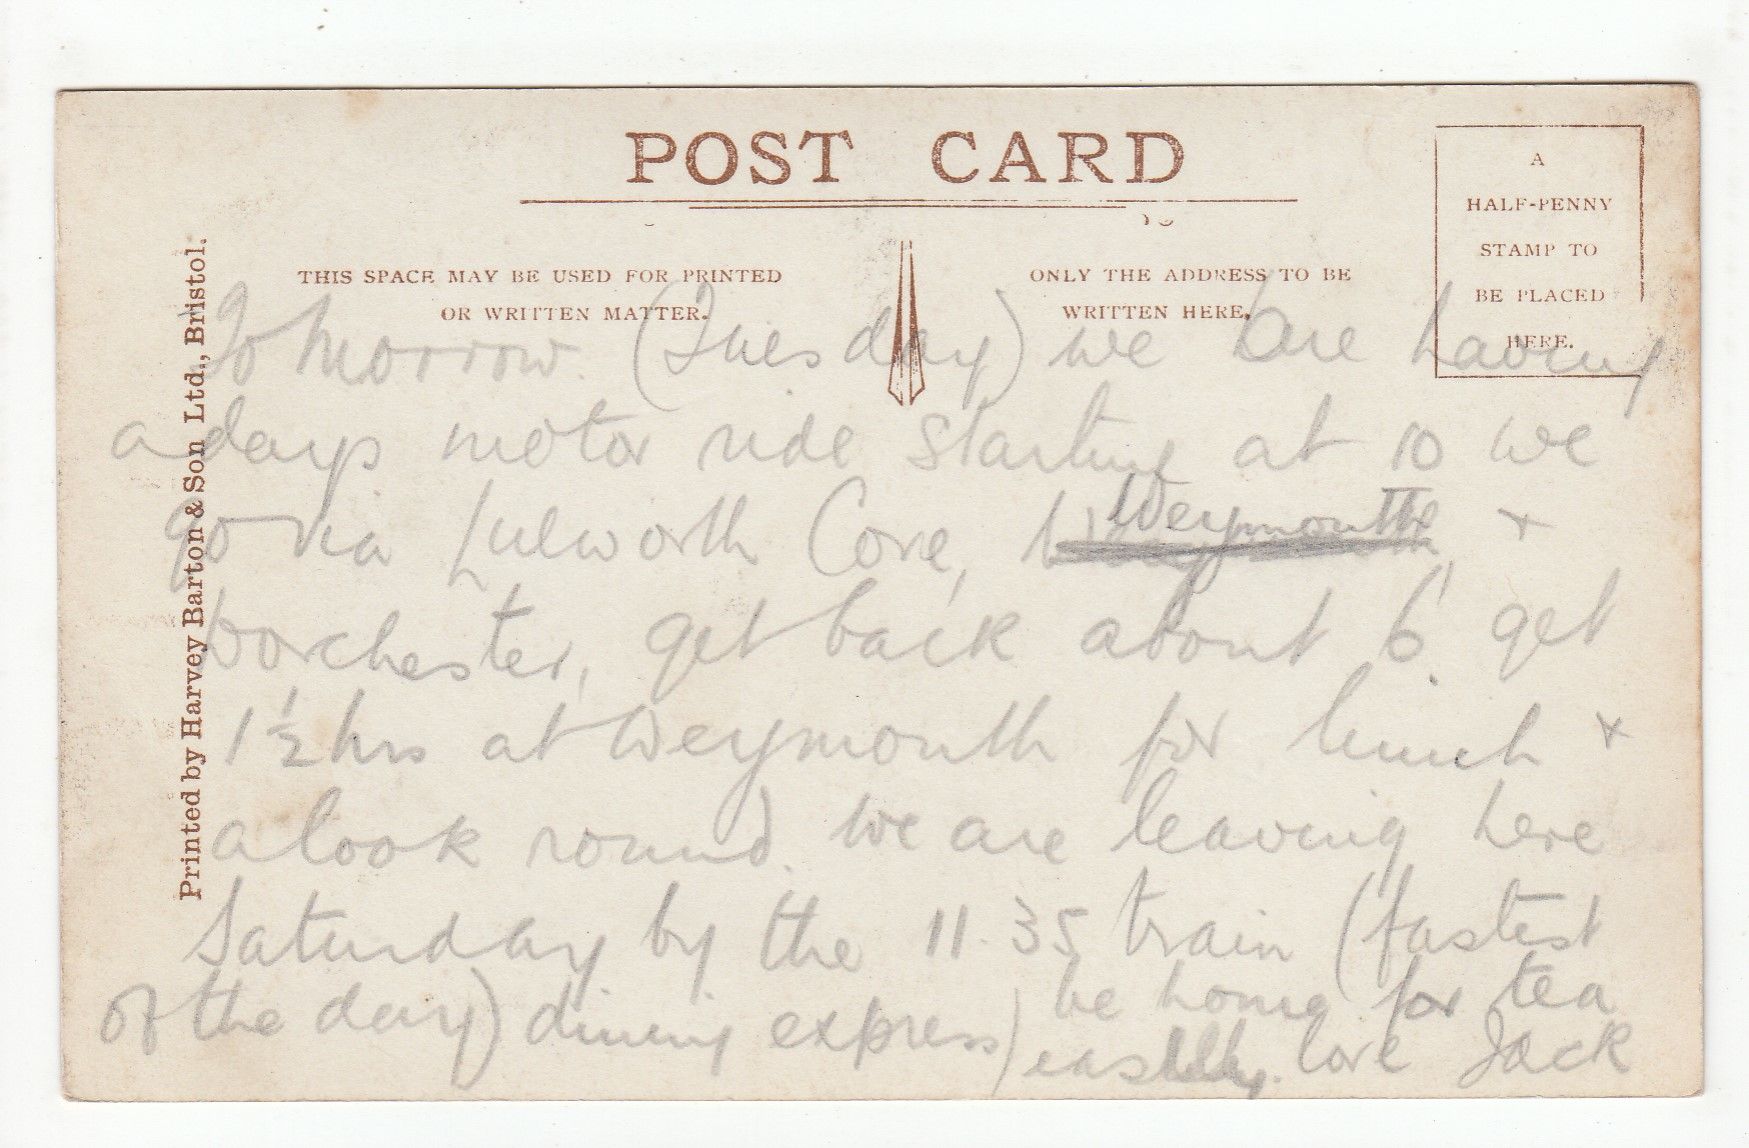 POST CARD
THIS SPACE MAY BE USED FOR PRINTED
OR WRITTEN MATTER.
ONLY THE ADDRESS TO BE
WRITTEN HERE.
A
HALF-PENNY
STAMP TO
BE PLACED
HERE.
Printed by Harvey Barton & Son Ltd, Bristol.
Tomorrow. (Tuesday) we are having
a days motor ride starting at 10 we
go via Lulworth Cove, Weymouth +
Dorchester, get back about 6. get
1½ hrs at Weymouth for lunch +
a look round. We are leaving here
Saturday by the 11.35 train (fastest
of the day) dining express) be home for tea
easily. love Jack